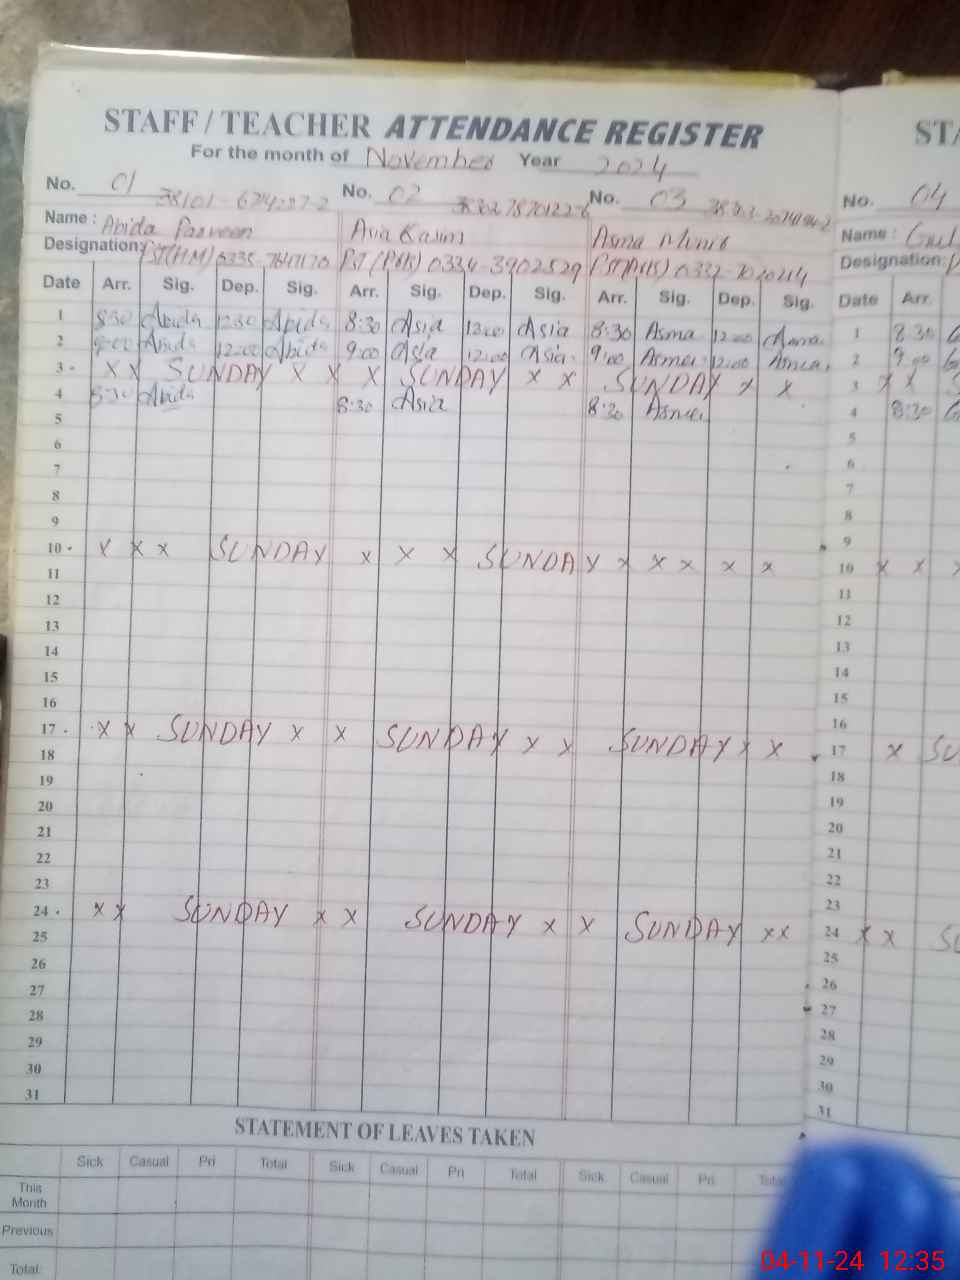 STAFF / TEACHER ATTENDANCE REGISTER
For the month of November Year 2024
No. 01 No. 02 No. 03
Name : Abida Parveen Asma Munir
Designation: PST(HM) 0334-3902529
Date Arr. Sig. Dep. Sig. Arr. Sig. Dep. Sig. Arr. Sig. Dep. Sig.
1 8:30 Abida 12:30 Abida 8:30 Asia 12:00 Asia 8:30 Asma 12:00 Asma
2 9:00 Abida 12:00 Abida 9:00 Asia 12:00 Asia 9:00 Asma 12:00 Asma
3 x x SUNDAY x x x SUNDAY x x SUNDAY x x
4 8:30 Abida 8:30 Asia 8:30 Asma
5
6
7
8
9
10 x x x SUNDAY x x x SUNDAY x x x x x
11
12
13
14
15
16
17 x x SUNDAY x x SUNDAY x x SUNDAY x x
18
19
20
21
22
23
24 x x SUNDAY x x SUNDAY x x SUNDAY x x
25
26
27
28
29
30
31
STATEMENT OF LEAVES TAKEN
Sick Casual Pri Total Sick Casual Pri Total Sick Casual Pri
This Month
Previous
Total
No. 04
Name :
Designation:
Date Arr.
1 8:30
2 9:00
3 x x
4 8:30
5
6
7
8
9
10 x x
11
12
13
14
15
16
17 x
18
19
20
21
22
23
24 x x
25
26
27
28
29
30
31
04-11-24 12:35